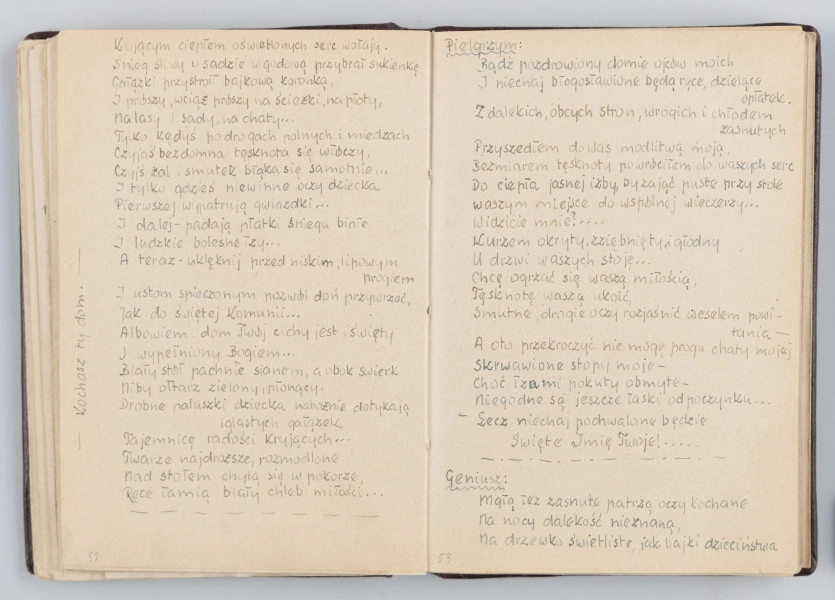 Kojącym ciepłem oświetlonych serc wołają.
Śnieg śliwy w sadzie w godową przybrał sukienkę
Gałązki przystroił bajkową koronką,
I prószy, wciąż prószy na ścieżki, na płoty,
Na lasy i sady, na chaty...
Tylko kędyś po drogach polnych i miedzach
Czyjaś bezdomna tęsknota się włóczy,
Czyjś żal i smutek błąka się samotnie...
I tylko gdzieś niewinne oczy dziecka
Pierwszej wypatrują gwiazdki...
I dalej - padają płatki śniegu białe
I ludzkie bolesne łzy...
A teraz - uklęknij przed niskim, lipowym
progiem
I ustom spieczonym pozwól doń przywrzeć,
Jak do świętej Komunii...
Albowiem dom Twój cichy jest i święty
I wypełniony Bogiem...
Biały stół pachnie sianem, a obok świerk
Niby ołtarz zielony, płonący.
Drobne paluszki dziecka nabożnie dotykają
iglastych gałązek
Tajemnicę radości kryjących...
Twarze najdroższe, rozmodlone
Nad stołem chylą się w pokorze,
Ręce łamią biały chleb miłości...
— Kochasz ty dom. —
52
Pielgrzym:
Bądź pozdrowiony domie ojców moich
I niechaj błogosławione będą ręce, dzielące
opłatek.
Z dalekich, obcych stron, wrogich i chłodem
zasnutych
Przyszedłem do was modlitwą moją,
Bezmiarem tęsknoty powróciłem do waszych serc
Do ciepła jasnej izby, by zająć puste przy stole
waszym miejsce do wspólnej wieczerzy...
Widzicie mnie?....
Kurzem okryty, zziębnięty i głodny
U drzwi waszych stoję...
Chcę ogrzać się waszą miłością,
Tęsknotę waszą ukoić,
Smutne, drogie oczy rozjaśnić weselem powi-
tania —
A oto przekroczyć nie mogę progu chaty mojej
Skrwawione stopy moje -
Choć łzami pokuty obmyte -
Niegodne są jeszcze łaski odpoczynku...
- Lecz niechaj pochwalone będzie
Święte Imię Twoje!.....
Geniusz:
Mgłą łez zasnute patrzą oczy kochane
Na nocy dalekość nieznaną,
Na drzewko świetliste, jak bajki dzieciństwa
53